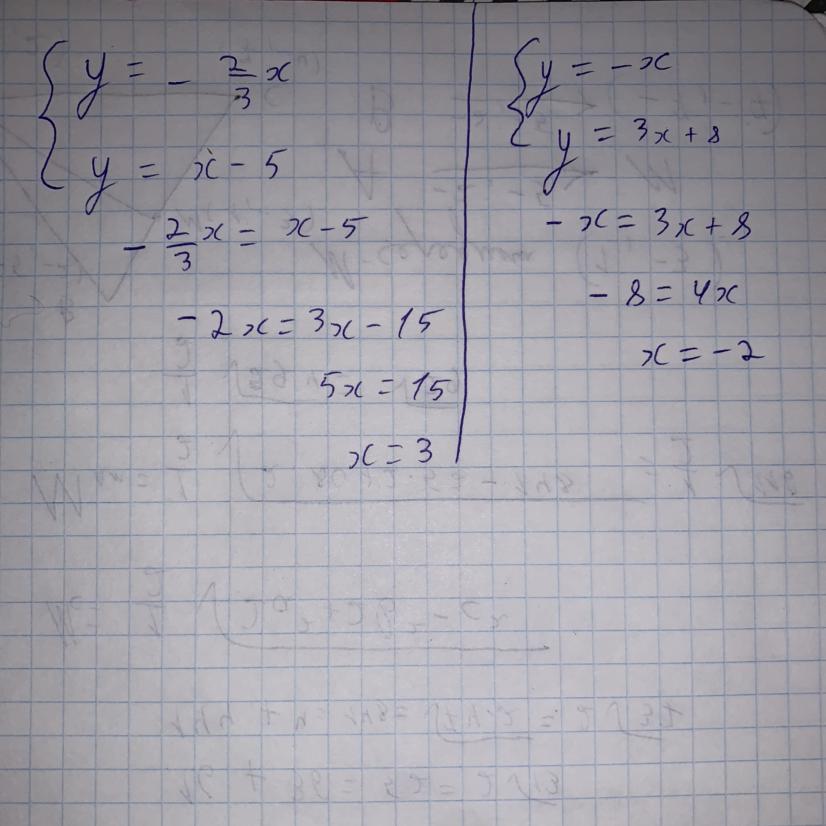 y = - 2/3 x
y = x - 5
- 2/3 x = x - 5
-2x = 3x - 15
5x = 15
x = 3
y = -x
y = 3x + 8
-x = 3x + 8
-8 = 4x
x = -2